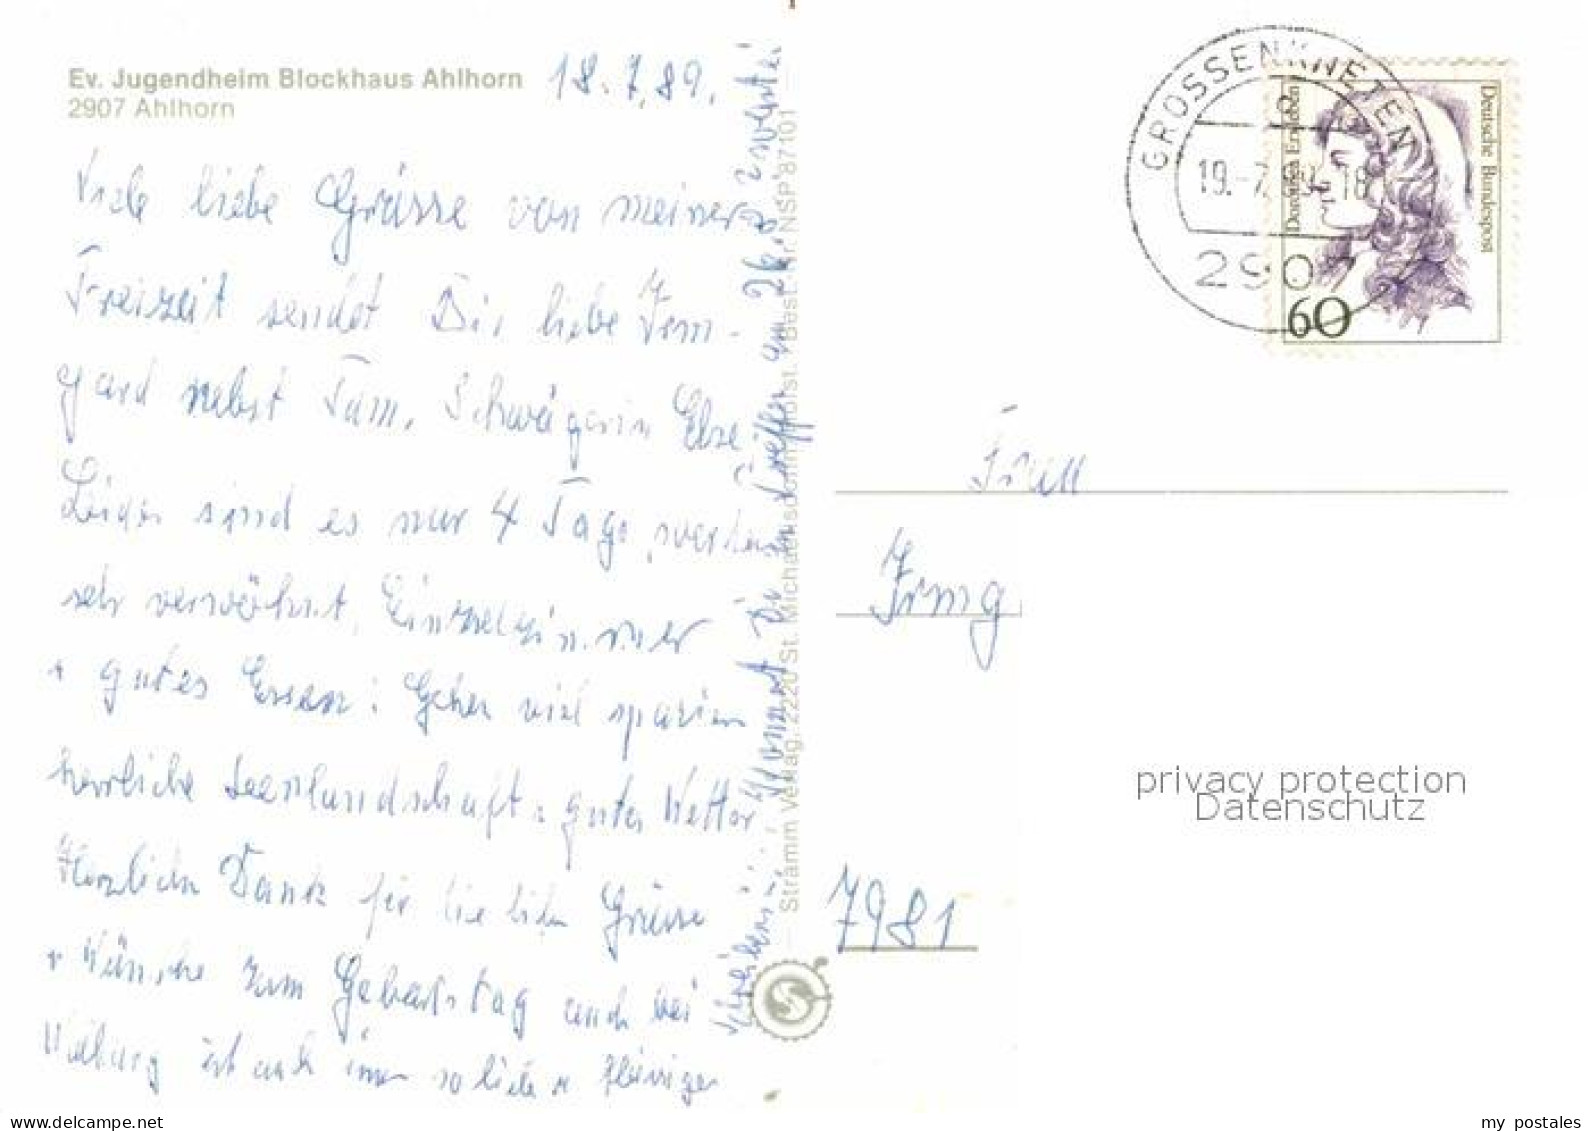 Ev. Jugendheim Blockhaus Ahlhorn
2907 Ahlhorn
18.7.89.
Viele liebe Grüsse von meiner
Freizeit sendet Dir liebe Irm-
gard nebst Fam. Schwägerin Else
Leider sind es nur 4 Tage, werden
sehr verwöhnt, Einzelzimmer
+ gutes Essen! Gehen viel spazieren
herrliche Seenlandschaft + gutes Wetter
Herzlichen Dank für die lieben Grüsse
+ Wünsche zum Geburtstag auch bei
ist auch immer so liebe +
Kommst Du zum Treffen am 26.
Stramm Verlag, 2220 St. Michaelisdonn/Holst. Best.-Nr. NSP 87101
GROSSENKNETEN
19.-7.89-18
2907
Deutsche Bundespost
Dorothea Erxleben
60
Frau
Irmg
7981
privacy protection
Datenschutz
my postales